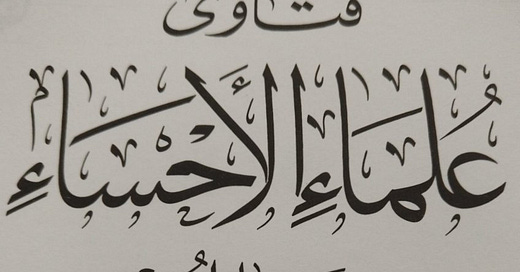 فتاوى
عُلَمَاءِ الأَحْسَاءِ